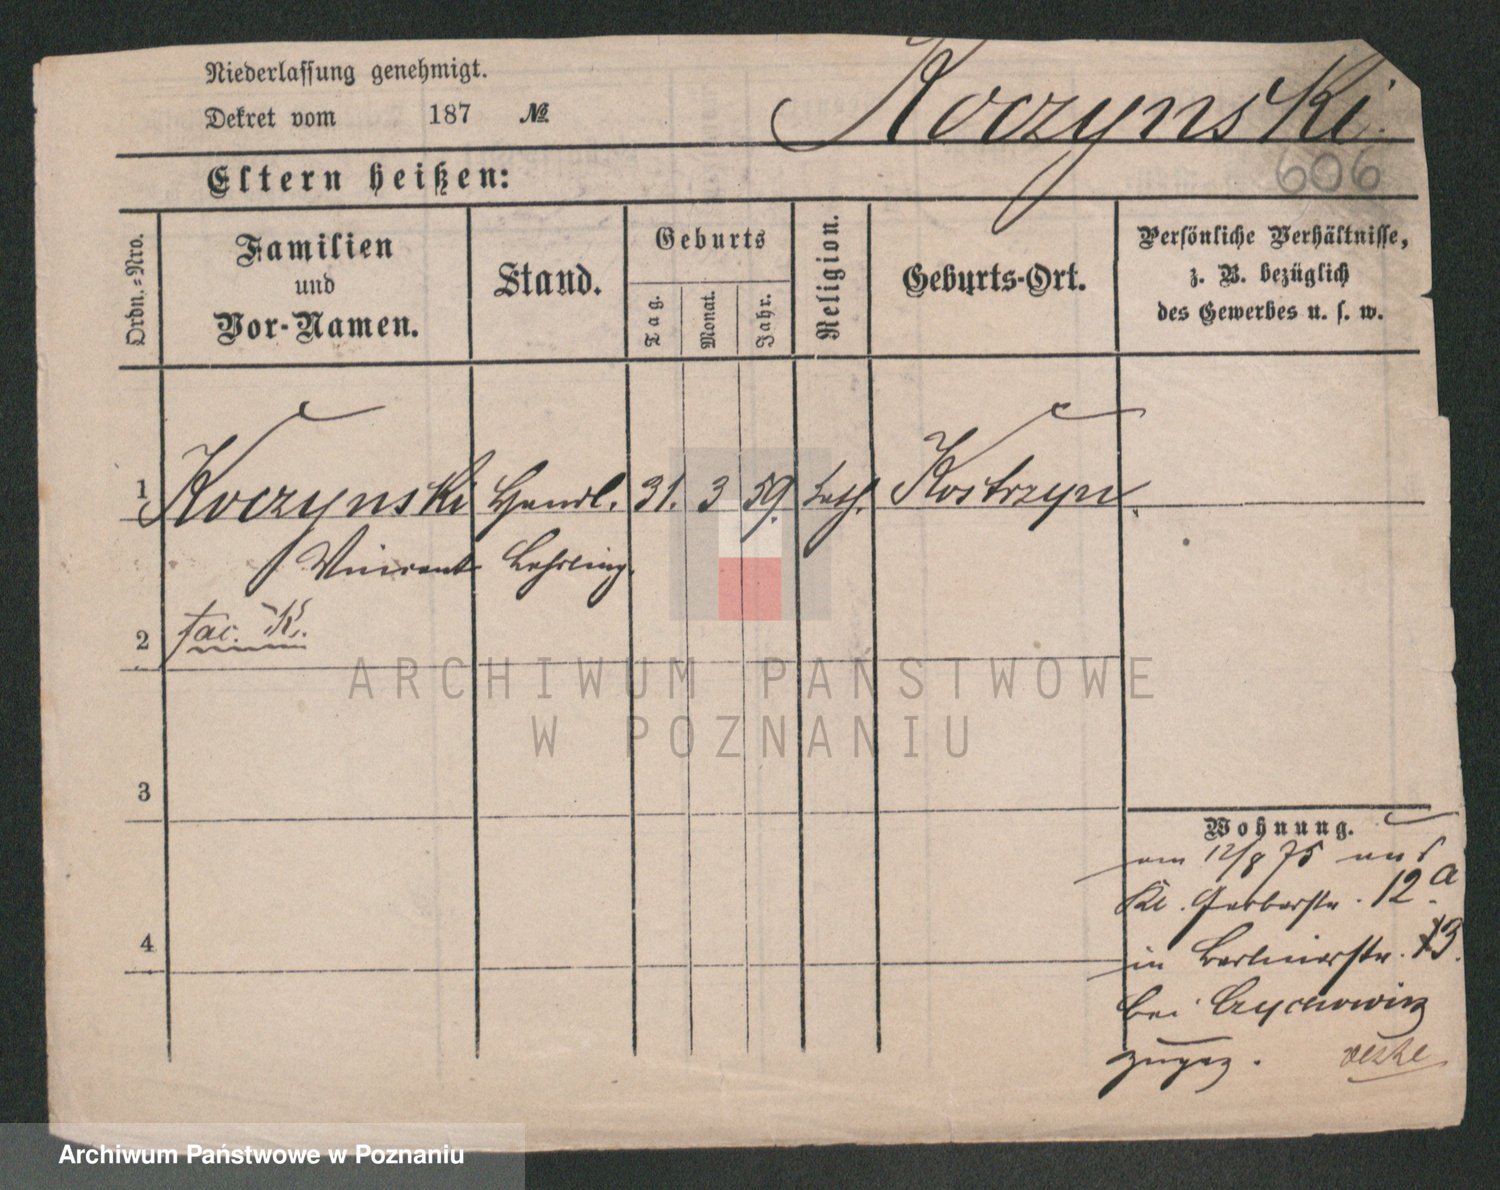 Niederlassung genehmigt.
Dekret vom 187 №
Koczynski.
606
Eltern heißen:
Ordn.-Nro.
Familien
und
Vor-Namen.
Stand.
Geburts
Tag.
Monat.
Jahr.
Religion.
Geburts-Ort.
Persönliche Verhältnisse,
z. B. bezüglich
des Gewerbes u. s. w.
1 Koczynski Handl. 31. 3 59. kath. Kostrzyn
Vincent Lehrling.
2 fac. K.
3
4
Wohnung.
am 12/8 75 aus
Kl. Gerberstr. 12 a
in Berlinerstr. 13.
bei
zugez.
ARCHIWUM PAŃSTWOWE
W POZNANIU
Archiwum Państwowe w Poznaniu